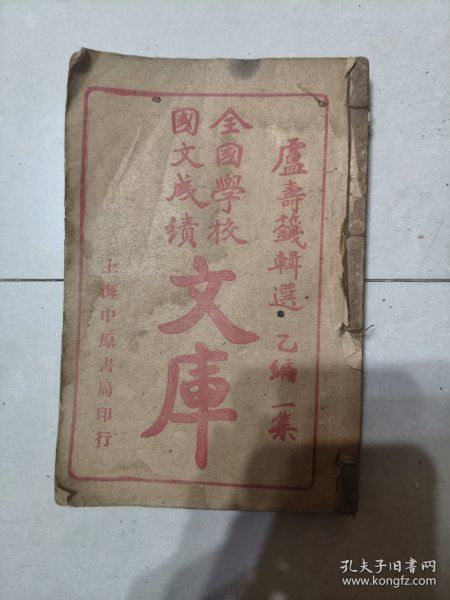 盧壽籛輯選 乙編 一集
全國學校
國文成績
文庫
上海中原書局印行
孔夫子旧书网
www.kongfz.com